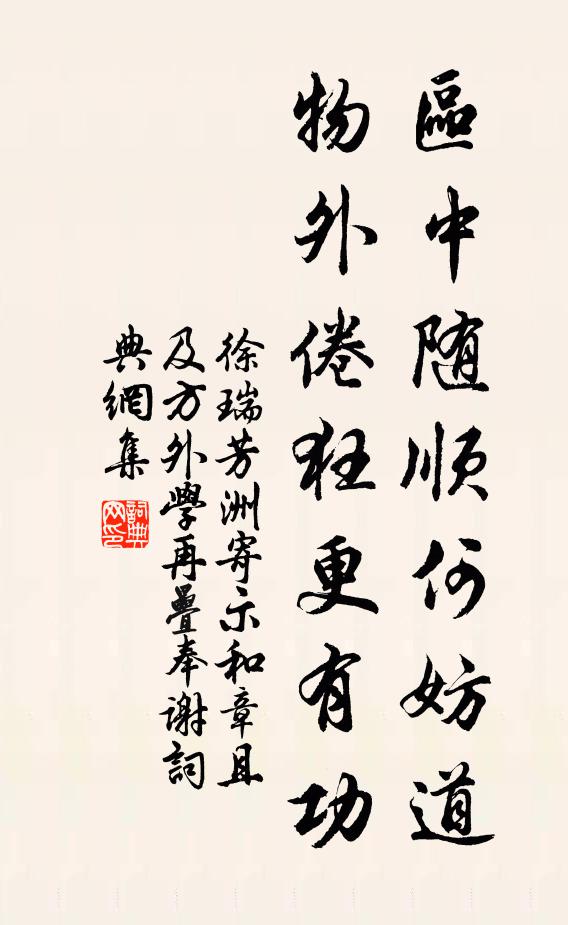 區中随顺何妨道
物外倦狂更有功
徐瑞芳洲寄示和章且
及方外學再疊奉谢詞
典網集
詞典网印